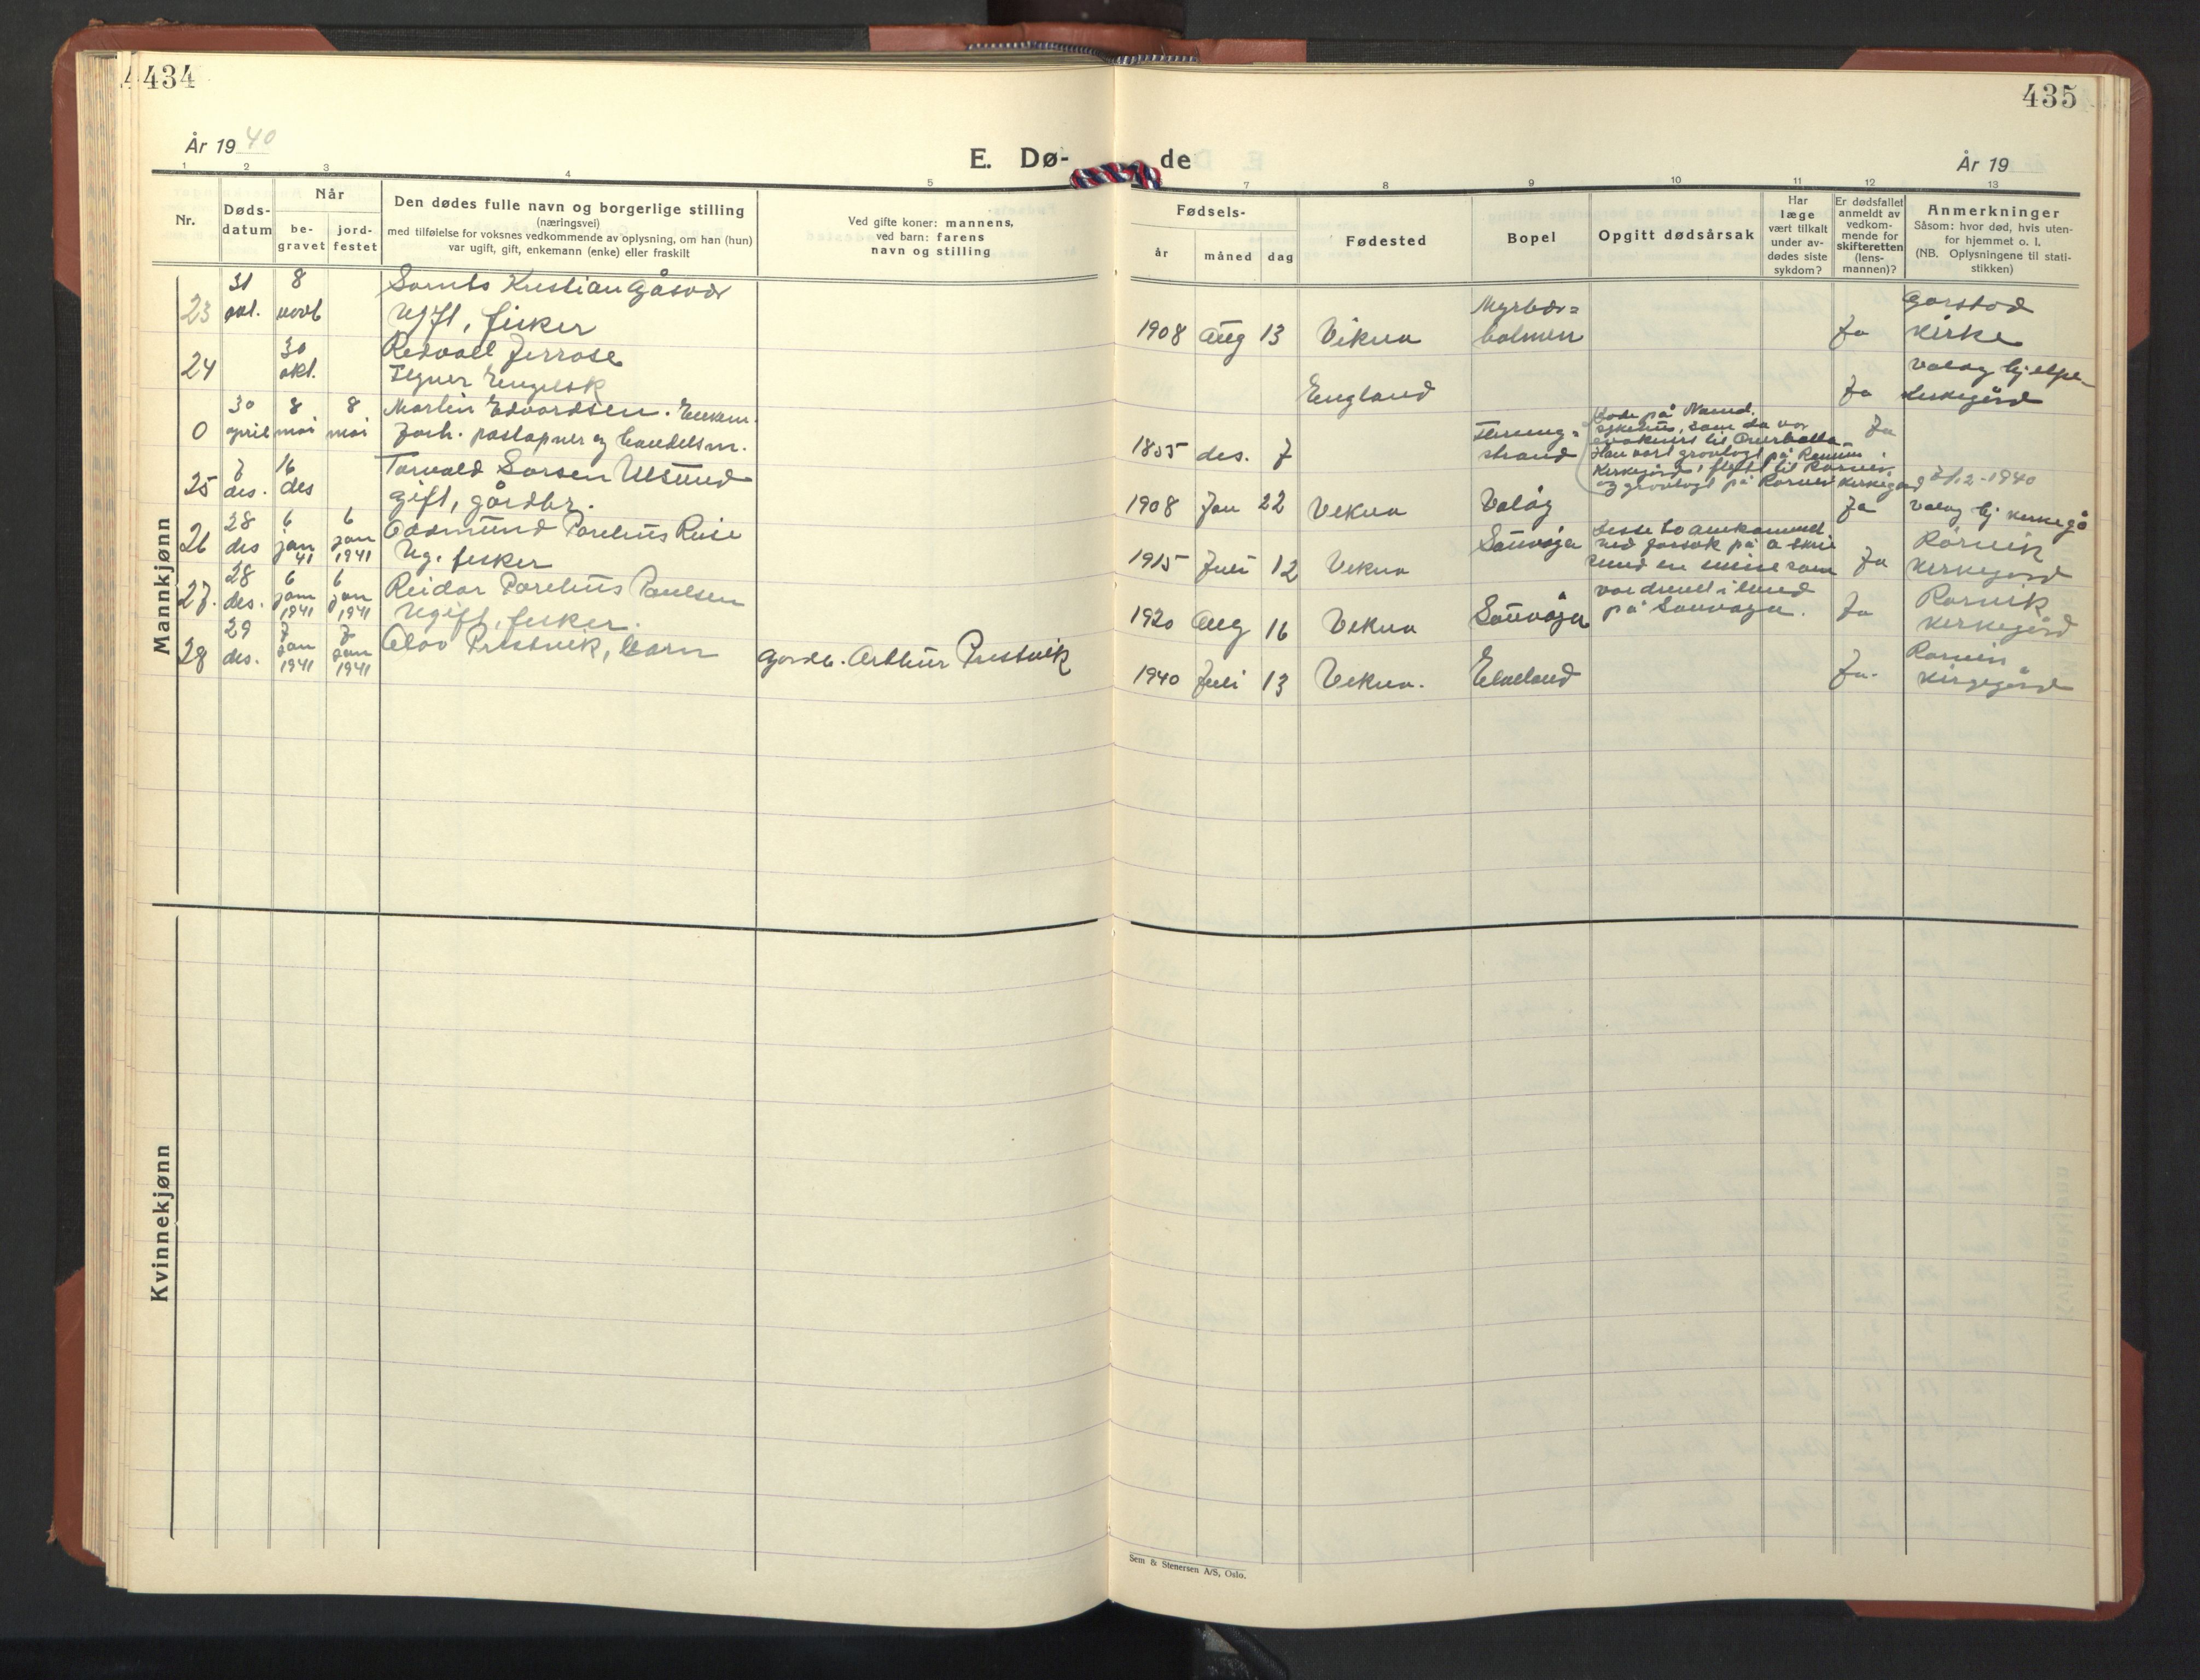 434
År 19 40
E. Dø-
1
2
3
4
5
Nr.
Døds-
datum
Når
be-
gravet
jord-
festet
Den dødes fulle navn og borgerlige stilling
(næringsvei)
med tilføielse for voksnes vedkommende av oplysning, om han (hun)
var ugift, gift, enkemann (enke) eller fraskilt
Ved gifte koner: mannens,
ved barn: farens
navn og stilling
Mannkjønn
31 8 Kristian Gåsvær
23 okt. novb Ugift, fisker
30
24 okt.
Engelsk
30 8 8 Martin Edvardsen. Enkem.
0 april mai mai
7 16
25 des. des gift, gårdbr.
28 6 6
26 des jan 41 jan 1941 Ug. fisker
28 6 6 Reidar Parelius Paulsen
27. des. jan 1941 jan 1941 Ugift, fisker.
29 7 7 Olav Prestvik, barn
28 des. jan 1941 jan 1941
Gardb. Arthur Prestvik
Kvinnekjønn
435
de
År 19
7
8
9
10
11
12
13
Fødsels-
år
måned
dag
Fødested
Bopel
Opgitt dødsårsak
Har
læge
vært tilkalt
under av-
dødes siste
sykdom?
Er dødsfallet
anmeldt av
vedkom-
mende for
skifteretten
(lens-
mannen)?
Anmerkninger
Såsom: hvor død, hvis uten-
for hjemmet o. l.
(NB. Oplysningene til stati-
stikken)
Garstad
1908 Aug 13 Vikna holmen Ja kirke
Valøy hjelpe-
England Ja kirkegård
Døde på Namd.
sykehus, som da var
evakuert til Overhalla
1855 des. 7 strand Ja
kirkegård, flyttt til Rørvik
og gravlagt på Rørvik kirkegård 7/12-1940
1908 Jan 22 Vikna Valøy Ja Valøy hj kirkegå
Disse to omkommet
Sønvåga ved forsøk på å
Rørvik
1915 Juli 12 Vikna en mine som Ja kirkegård
var drevet i land
Rørvik
1920 Aug 16 Vikna Sønvåga på Sønvåga. Ja kirkegård
Rørvik
1940 Juli 13 Vikna. Ja.
Sem & Stenersen A/S, Oslo.